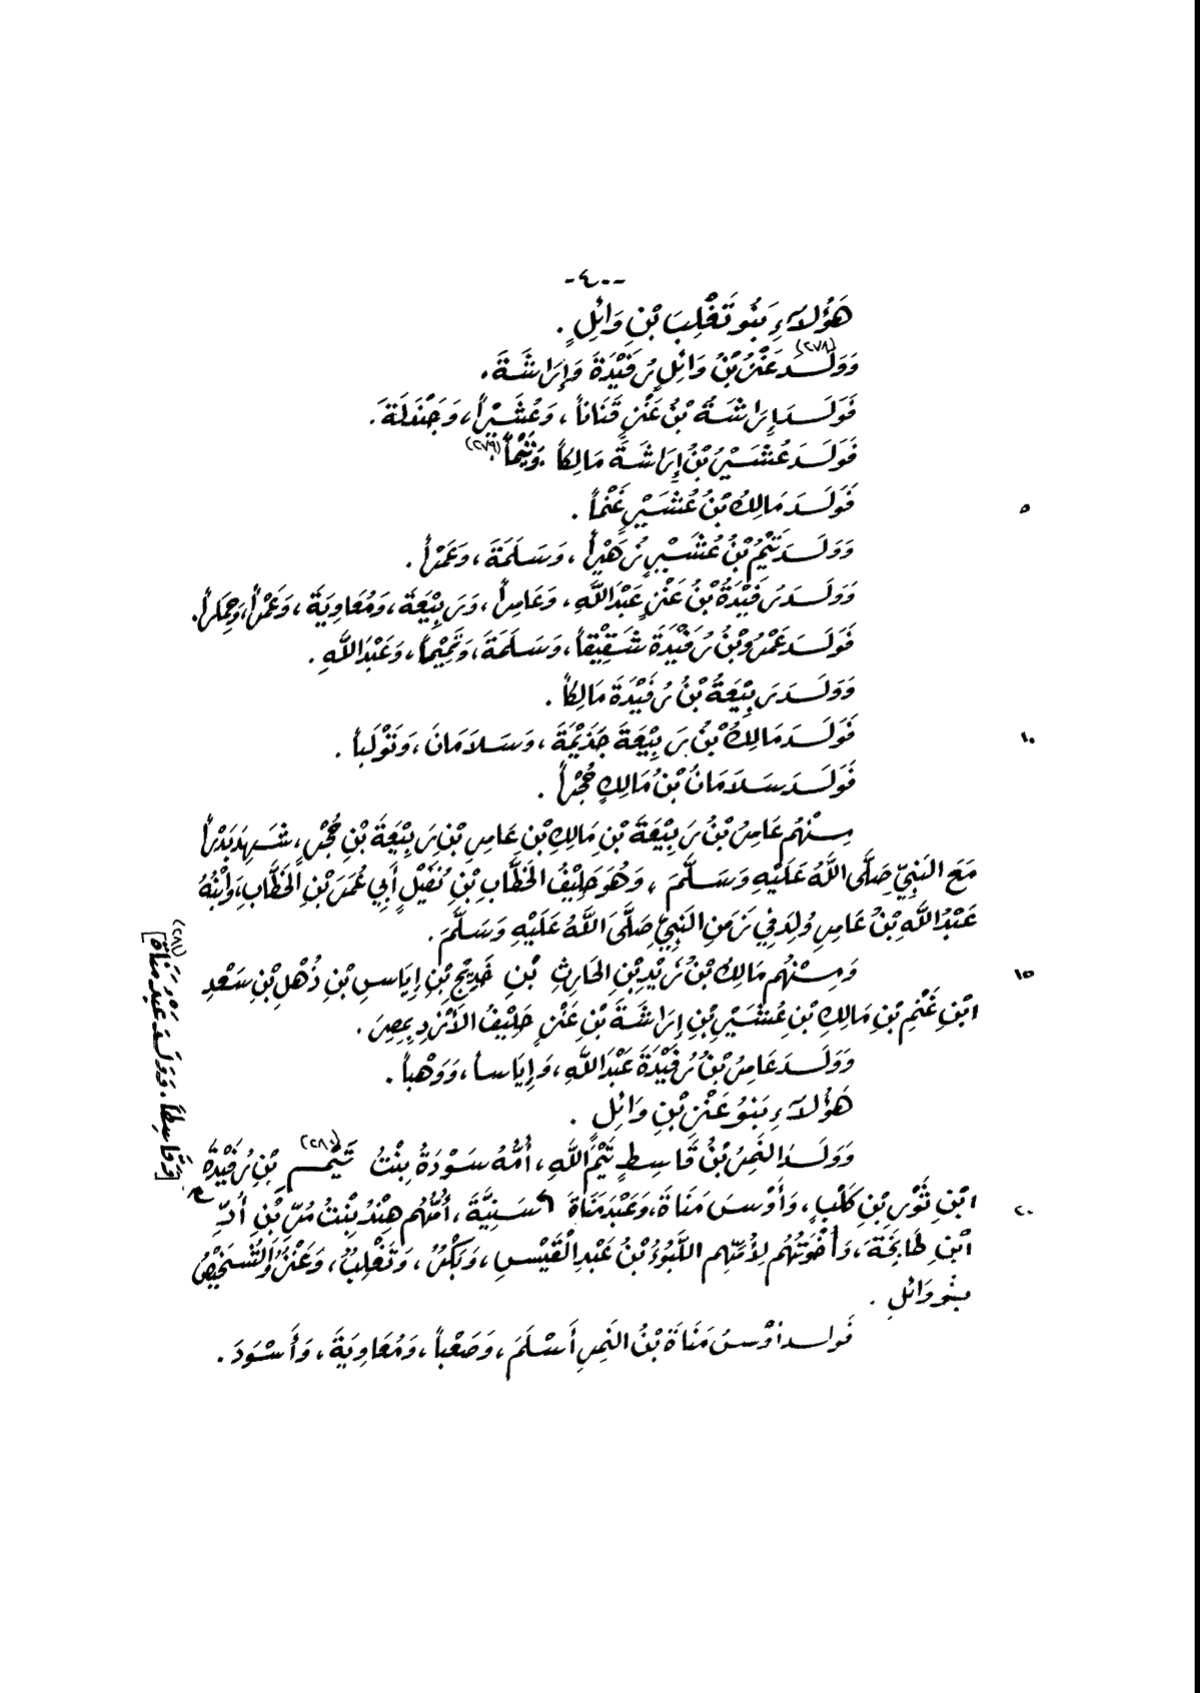 -٤٠٠-
هَؤُلاَءِ بَنُو تَغْلِبَ بْنِ وَائِلٍ .
وَوَلَدَ (٢٧٨) عَنْزُ بْنُ وَائِلٍ رُفَيْدَةَ وَإِرَاشَةَ.
فَوَلَدَ إِرَاشَةُ بْنُ عَنْزٍ قَنَاناً، وَعُشَيْراً، وَجَنْدَلَةَ.
فَوَلَدَ عُشَيْرُ بْنُ إِرَاشَةَ مَالِكاً وَتَيْماً (٢٧٩).
٥ فَوَلَدَ مَالِكُ بْنُ عُشَيْرٍ غَنْماً .
وَوَلَدَ تَيْمُ بْنُ عُشَيْرٍ زُهَيْراً، وَسَلَمَةَ، وَعَمْراً .
وَوَلَدَ رُفَيْدَةُ بْنُ عَنْزٍ عَبْدَ اللَّهِ، وَعَامِراً، وَرَبِيْعَةَ، وَمُعَاوِيَةَ، وَعَمْراً،
فَوَلَدَ عَمْرُو بْنُ رُفَيْدَةَ شَقِيْقاً، وَسَلَمَةَ، وَتَمِيْماً، وَعَبْدَ اللَّهِ .
وَوَلَدَ رَبِيْعَةُ بْنُ رُفَيْدَةَ مَالِكاً .
١٠ فَوَلَدَ مَالِكُ بْنُ رَبِيْعَةَ جَذِيْمَةَ، وَسَلاَمَانَ، وَتَوْلَباً .
فَوَلَدَ سَلاَمَانُ بْنُ مَالِكٍ حُجْراً .
مِنْهُم عَامِرُ بْنُ رَبِيْعَةَ بْنِ مَالِكِ بْنِ عَامِرِ بْنِ رَبِيْعَةَ بْنِ حُجْرٍ، شَهِدَ بَدْراً
مَعَ النَّبِيِّ صَلَّى اللَّهُ عَلَيْهِ وَسَلَّمَ، وَهُوَ حَلِيْفُ الخَطَّابِ بْنِ نُفَيْلٍ أَبِي عُمَرَ بْنِ الخَطَّابِ، وَابْنُهُ
عَبْدُ اللَّهِ بْنُ عَامِرٍ وُلِدَ فِي زَمَنِ النَّبِيِّ صَلَّى اللَّهُ عَلَيْهِ وَسَلَّمَ.
١٥ وَمِنْهُم مَالِكُ بْنُ زَيْدِ بْنِ الحَارِثِ بْنِ خَدِيْجِ بْنِ إِيَاسِ بْنِ ذُهْلِ بْنِ سَعْدِ
ابْنِ غَنْمِ بْنِ مَالِكِ بْنِ عُشَيْرِ بْنِ إِرَاشَةَ بْنِ عَنْزٍ حَلِيْفُ الأَزْدِ بِمِصرَ .
وَوَلَدَ عَامِرُ بْنُ رُفَيْدَةَ عَبْدَ اللَّهِ، وَإِيَاساً، وَوَهْباً .
هَؤُلاَءِ بَنُو عَنْزِ بْنِ وَائِلٍ .
وَوَلَدَ النَّمِرُ بْنُ قَاسِطٍ تَيْمَ اللَّهِ، أُمُّهُ سَوْدَةُ بِنْتُ تَيْمِ (٢٨٠) بْنِ رُفَيْدَةَ
٢٠ ابْنِ ثَوْرِ بْنِ كَلْبٍ، وَأَوْسَ مَنَاةَ، وَعَبْدَ مَنَاةَ أُمُّهُم هِنْدُ بِنْتُ مُرِّ بْنِ أُدِّ
ابْنِ طَابِخَةَ، وَأَخْوَتُهُم لِأُمِّهِم اللَّبُوءُ بْنُ عَبْدِ الْقَيْسِ، وَبَكْرُ، وَتَغْلِبُ، وَعَنْزُ وَالشَّخِيْصُ
بنو وَائِلٍ .
فَولد أوْسُ مَنَاةَ بْنُ النَّمِرِ أَسْلَمَ، وَصَعْباً، وَمُعَاوِيَةَ، وَأَسْوَدَ .
[وَقَاسِطاً. وَوَلَدَ عَبْدُ مَنَاةَ] (٢٨١)